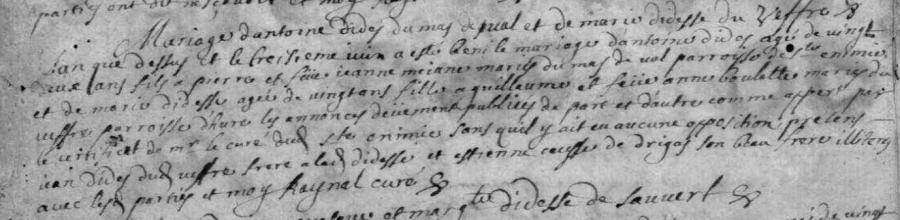 parties ont dit ne scavoir et moy
Mariage dantoine dides du mas de val et de marie didesse du veffre
Lan que dessus et le treisieme juin a este beni le mariage dantoine dides agé de vingt
deux ans fils a pierre et feue jeanne mejane mariés du mas de val parroisse de ste enimie
et de marie didesse agee de vingt ans fille a guillaume et feue anne boulette mariés du
veffre parroisse dhure les annonces deuement publiées de part et dautre comme appert par
le certificat de mr le curé dud ste enimie sans quil y ait eu aucune opposition presens
jean dides dud veffre frere a lad didesse et estienne causse de drigas son beau frere illiterés
avec lesd parties et moy Raynal curé
et margte didesse de sauvert
de vingt